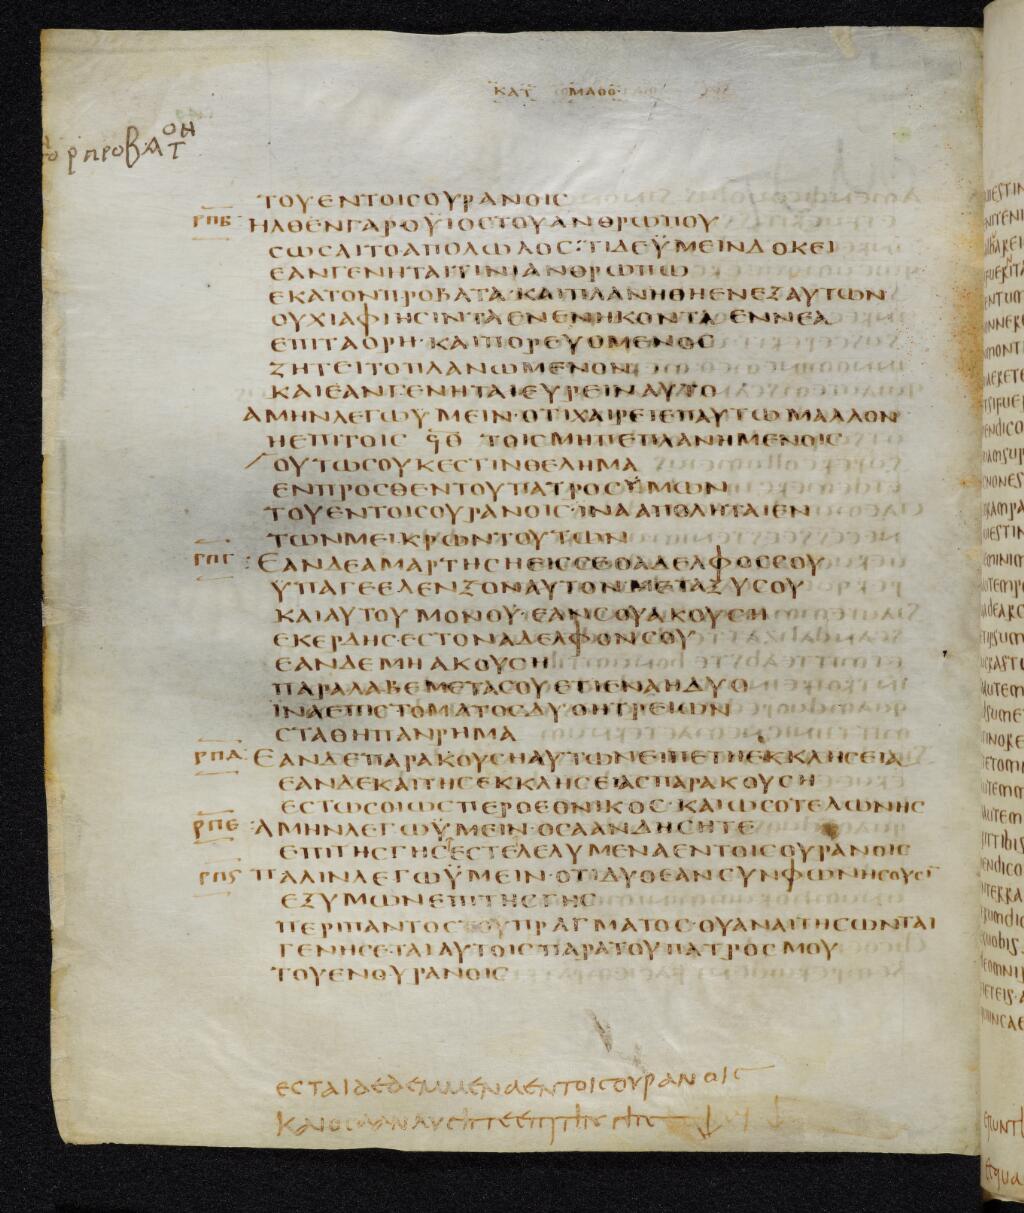 ΚΑΤ ΜΑΘΘ
ΡΠΡΟΒΑΤΟΗ
ΤΟΥΕΝΤΟΙСΟΥΡΑΝΟΙС
ΡΠΒ ΗΛΘΕΝΓΑΡΟΥΙΟСΤΟΥΑΝΘΡΩΠΟΥ
СΩСΑΙΤΟΑΠΟΛΩΛΟС:ΤΙΔΕΥΜΕΙΝΔΟΚΕΙ
ΕΑΝΓΕΝΗΤΑΙΤΙΝΙΑΝΘΡΩΠΩ
ΕΚΑΤΟΝΠΡΟΒΑΤΑ·ΚΑΙΠΛΑΝΗΘΗΕΝΕΞΑΥΤΩΝ
ΟΥΧΙΑΦΙΗСΙΝΤΑΕΝΕΝΗΚΟΝΤΑ·ΕΝΝΕΑ
ΕΠΙΤΑΟΡΗ·ΚΑΙΠΟΡΕΥΟΜΕΝΟС
ΖΗΤΕΙΤΟΠΛΑΝΩΜΕΝΟΝ
ΚΑΙΕΑΝΓΕΝΗΤΑΙΕΥΡΕΙΝΑΥΤΟ
ΑΜΗΝΛΕΓΩΥΜΕΙΝ·ΟΤΙΧΑΙΡΕΙΕΠΑΥΤΩΜΑΛΛΟΝ
ΗΕΠΙΤΟΙС ϤΘ ΤΟΙСΜΗΠΕΠΛΑΝΗΜΕΝΟΙС
ΟΥΤΩСΟΥΚΕСΤΙΝΘΕΛΗΜΑ
ΕΝΠΡΟСΘΕΝΤΟΥΠΑΤΡΟСΫΜΩΝ
ΤΟΥΕΝΤΟΙСΟΥΡΑΝΟΙС·ΙΝΑΑΠΟΛΗΤΑΙΕΝ
ΤΩΝΜΕΙΚΡΩΝΤΟΥΤΩΝ
ΡΠΓ ΕΑΝΔΕΑΜΑΡΤΗСΗΕΙССΕΟΑΔΕΛΦΟССΟΥ
ΥΠΑΓΕΕΛΕΝΞΟΝΑΥΤΟΝΜΕΤΑΞΥСΟΥ
ΚΑΙΑΥΤΟΥΜΟΝΟΥ·ΕΑΝСΟΥΑΚΟΥСΗ
ΕΚΕΡΔΗСΕСΤΟΝΑΔΕΛΦΟΝСΟΥ
ΕΑΝΔΕΜΗΑΚΟΥСΗ
ΠΑΡΑΛΑΒΕΜΕΤΑСΟΥΕΤΙΕΝΑΗΔΥΟ
ΙΝΑΕΠΙСΤΟΜΑΤΟСΔΥΟΗΤΡΕΙΩΝ
СΤΑΘΗΠΑΝΡΗΜΑ
ΡΠΔ ΕΑΝΔΕΠΑΡΑΚΟΥСΗΑΥΤΩΝΕΙΠΕΤΗΕΚΚΛΗСΕΙΑ
ΕΑΝΔΕΚΑΙΤΗСΕΚΚΛΗСΕΙΑСΠΑΡΑΚΟΥСΗ
ΕСΤΩСΟΙΩСΠΕΡΟΕΘΝΙΚΟС·ΚΑΙΩСΟΤΕΛΩΝΗС
ΡΠΕ ΑΜΗΝΛΕΓΩΫΜΕΙΝ·ΟСΑΑΝΔΗСΗΤΕ
ΕΠΙΤΗСΓΗСΕСΤΕΛΕΛΥΜΕΝΑΕΝΤΟΙСΟΥΡΑΝΟΙС
ΡΠϚ ΠΑΛΙΝΛΕΓΩΫΜΕΙΝ·ΟΤΙΔΥΟΕΑΝСΥΝΦΩΝΗСΟΥСΙ
ΕΞΥΜΩΝΕΠΙΤΗСΓΗС
ΠΕΡΙΠΑΝΤΟСΤΟΥΠΡΑΓΜΑΤΟС·ΟΥΑΝΑΙΤΗСΩΝΤΑΙ
ΓΕΝΗСΕΤΑΙΑΥΤΟΙСΠΑΡΑΤΟΥΠΑΤΡΟСΜΟΥ
ΤΟΥΕΝΟΥΡΑΝΟΙС
ΕСΤΑΙΔΕΔΕΜΜΕΝΑΕΝΤΟΙСΟΥΡΑΝΟΙС